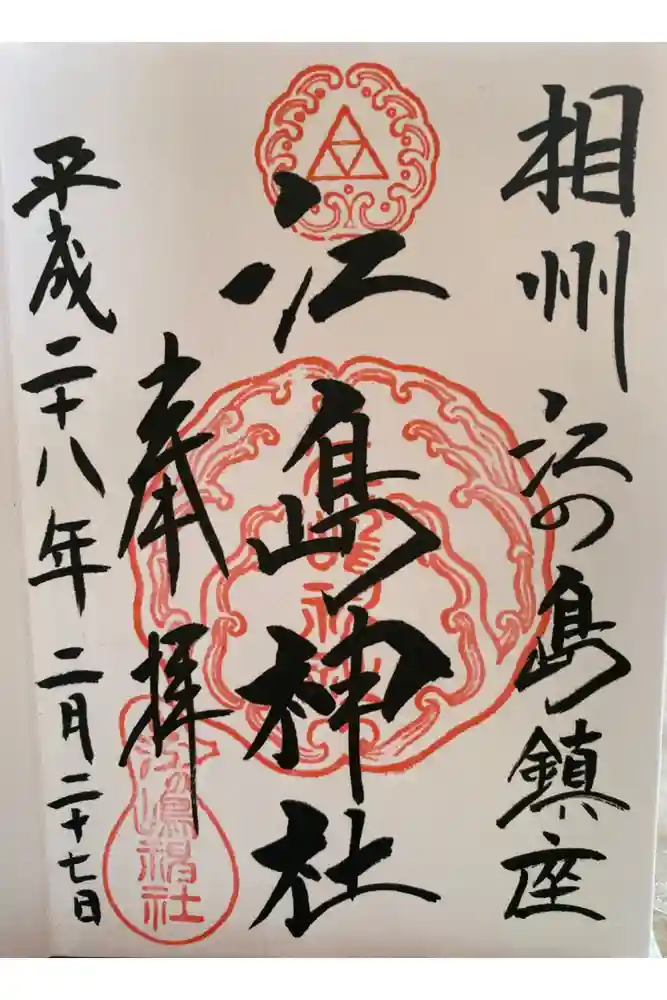 相州江の島鎮座
江島神社
奉拝
平成二十八年二月二十七日
江の嶋神社